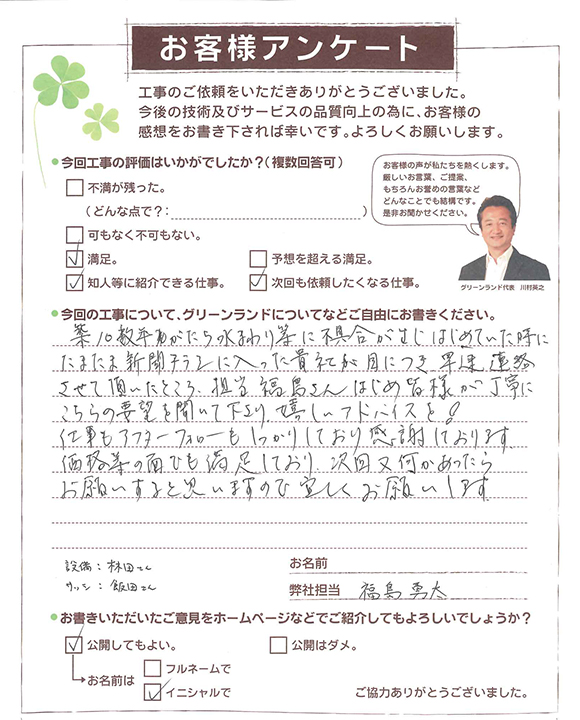 お客様アンケート
工事のご依頼をいただきありがとうございました。
今後の技術及びサービスの品質向上の為に、お客様の
感想をお書き下されば幸いです。よろしくお願いします。
●今回工事の評価はいかがでしたか?(複数回答可)
不満が残った。
(どんな点で?: )
可もなく不可もない。
満足。
予想を超える満足。
知人等に紹介できる仕事。
次回も依頼したくなる仕事。
お客様の声が私たちを熱くします。
厳しいお言葉、ご提案、
もちろんお誉めの言葉など
どんなことでも結構です。
是非お聞かせください。
グリーンランド代表 川村英之
●今回の工事について、グリーンランドについてなどご自由にお書きください。
築10数年あがたち水まわり等に不具合が生じはじめていた時に
たまたま新聞チラシに入った貴社が目につき早速連絡
させて頂いたところ、担当福島さんはじめ皆様が丁寧に
こちらの要望を聞いて下さり、嬉しいアドバイスも!
仕事もアフターフォローもしっかりしており感謝しております
価格等の面でも満足しており、次回又何かあったら
お願いすると思いますので宜しくお願いします
設備:林田さん
サッシ:飯田さん
お名前
弊社担当 福島 勇太
●お書きいただいたご意見をホームページなどでご紹介してもよろしいでしょうか?
公開してもよい。
公開はダメ。
お名前は
フルネームで
イニシャルで
ご協力ありがとうございました。